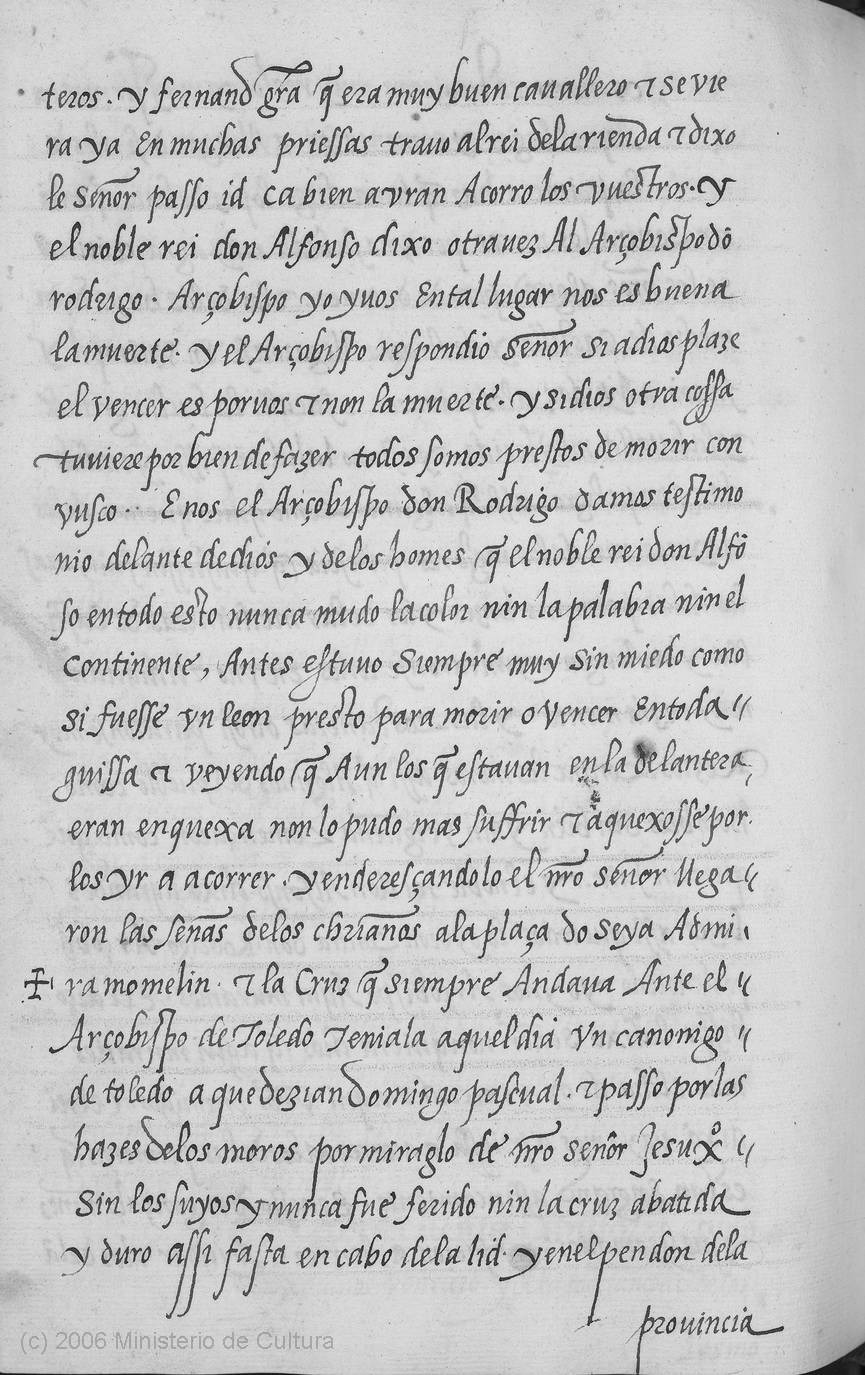 teros. y fernand gr̃a q̃ era muy buen cavallero ⁊ se vie
ra ya En muchas priessas travo al rei dela rienda ⁊ dixo
le señor passo id ca bien avran Acorro los vuestros. y
el noble rei don Alfonso dixo otra vez Al Arçobispo dõ
rodrigo. Arçobispo yo y vos En tal lugar nos es buena
la muerte. y el Arçobispo respondio señor si a dios plaze
el vencer es por vos ⁊ non la muerte. y si dios otra cossa
tuviere por bien de fazer todos somos prestos de morir con
vusco.. E nos el Arçobispo don Rodrigo damos testimo
nio delante de dios y delos homes q̃ el noble rei don Alfõ
so en todo esto nunca mudo la color nin la palabra nin el
continente, Antes estuvo siempre muy sin miedo como
si fuesse vn leon presto para morir o vencer En toda〃
guissa ⁊ veyendo q̃ Aun los q̃ estavan en la delantera,
eran en quexa non lo pudo mas suffrir ⁊ aquexosse por.
los yr a acorrer. y enderesçandolo el nr̃o señor llega〃
ron las señas delos chrianos a la plaça do seya Admi
✠ ramomelin. ⁊ la Cruz q̃ siempre Andava Ante el〃
Arçobispo de Toledo Teniala aquel dia vn canonigo〃
de toledo a que dezian domingo pascual. ⁊ passo por las
hazes delos moros por miraglo de nr̃o señor Jesuxº〃
Sin los suyos y nunca fue ferido nin la cruz abatida
y duro assi fasta en cabo de la lid. y en el pendon dela
provincia
(c) 2006 Ministerio de Cultura